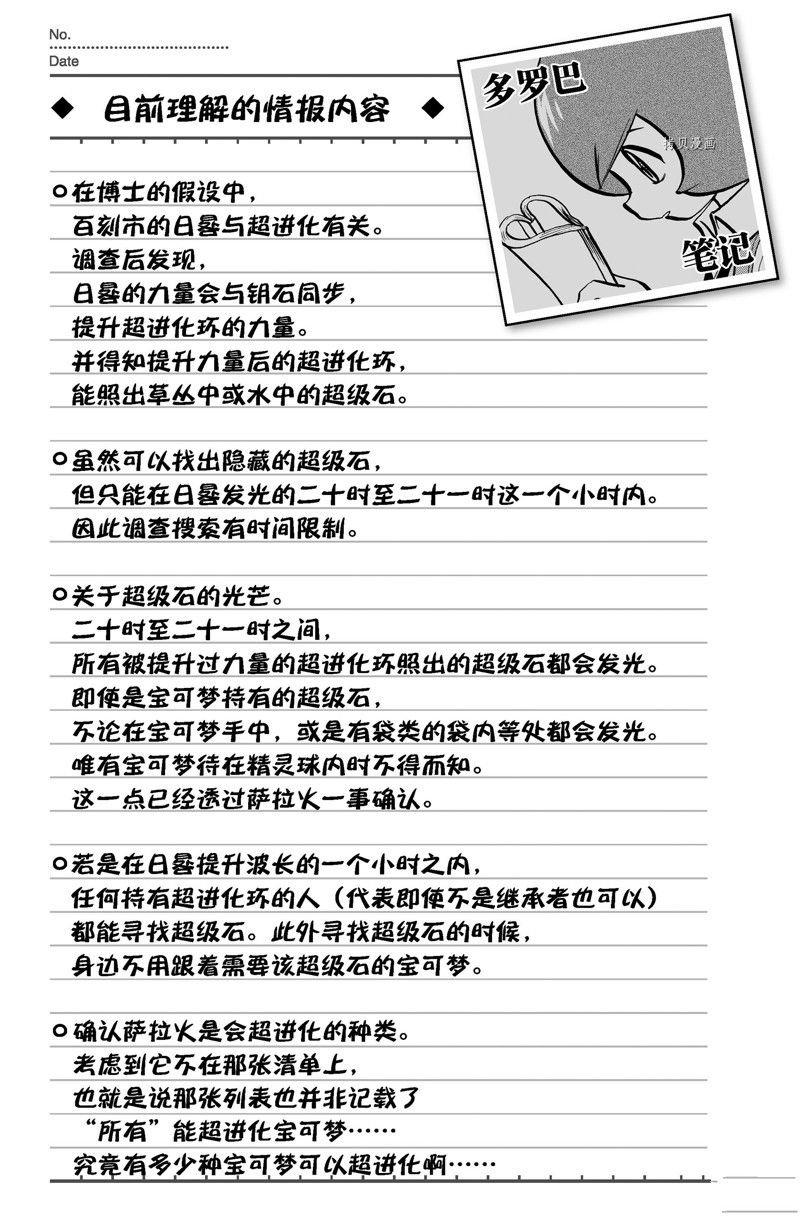 No.
Date
多罗巴
笔记
拷贝漫画
◆ 目前理解的情报内容 ◆
○在博士的假设中，
百刻市的日晷与超进化有关。
调查后发现，
日晷的力量会与钥石同步，
提升超进化环的力量。
并得知提升力量后的超进化环，
能照出草丛中或水中的超级石。
○虽然可以找出隐藏的超级石，
但只能在日晷发光的二十时至二十一时这一个小时内。
因此调查搜索有时间限制。
○关于超级石的光芒。
二十时至二十一时之间，
所有被提升过力量的超进化环照出的超级石都会发光。
即使是宝可梦持有的超级石，
不论在宝可梦手中，或是有袋类的袋内等处都会发光。
唯有宝可梦待在精灵球内时不得而知。
这一点已经透过萨拉火一事确认。
○若是在日晷提升波长的一个小时之内，
任何持有超进化环的人（代表即使不是继承者也可以）
都能寻找超级石。此外寻找超级石的时候，
身边不用跟着需要该超级石的宝可梦。
○确认萨拉火是会超进化的种类。
考虑到它不在那张清单上，
也就是说那张列表也并非记载了
“所有”能超进化宝可梦……
究竟有多少种宝可梦可以超进化啊……